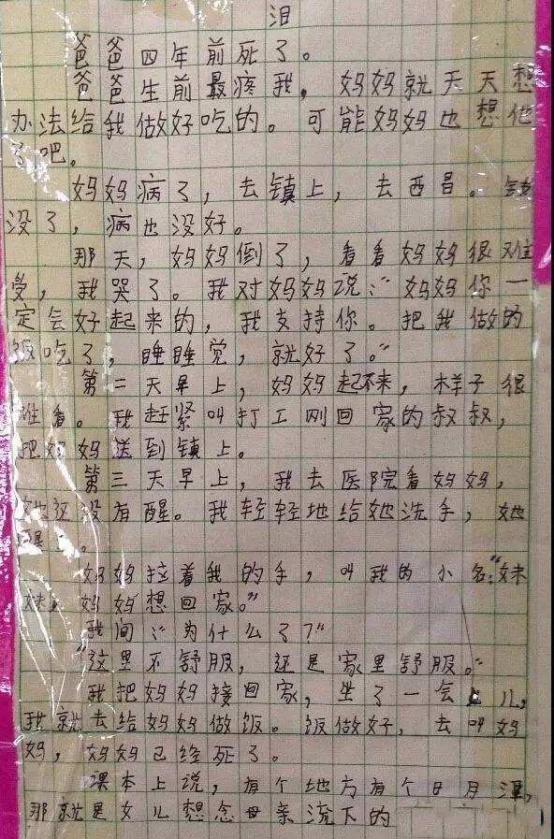 泪
爸爸四年前死了。
爸爸生前最疼我，妈妈就天天想
办法给我做好吃的。可能妈妈也想他
了吧。
妈妈病了，去镇上，去西昌。钱
没了，病也没好。
那天，妈妈倒了，看看妈妈很难
受，我哭了。我对妈妈说：“妈妈你一
定会好起来的，我支持你。把我做的
饭吃了，睡睡觉，就好了。”
第二天早上，妈妈起不来，样子很
难看。我赶紧叫打工刚回家的叔叔，
把妈妈送到镇上。
第三天早上，我去医院看妈妈，
她还没有醒。我轻轻地给她洗手，她
醒了。
妈妈拉着我的手，叫我的小名：“妹
妹，妈妈想回家。”
我问：“为什么了？”
“这里不舒服，还是家里舒服。”
我把妈妈接回家，坐了一会儿，
我就去给妈妈做饭。饭做好，去叫妈
妈，妈妈已经死了。
课本上说，有个地方有个日月潭，
那就是女儿想念母亲流下的